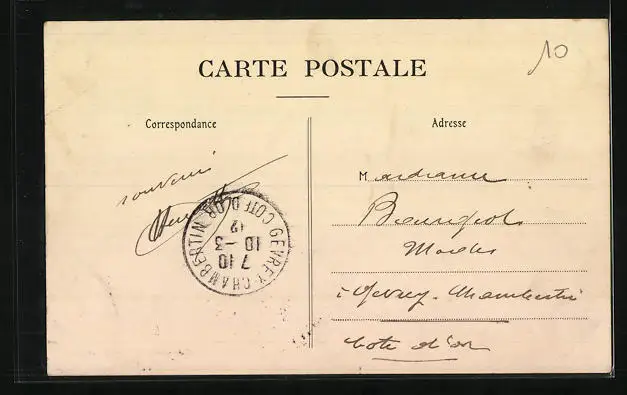 CARTE POSTALE
10
Correspondance
Adresse
souvenir
GEVREY-CHAMBERTIN COTE D'OR
7 10
10 - 3
12
M
Modes
à Gevrey-Chambertin
Cote d'or